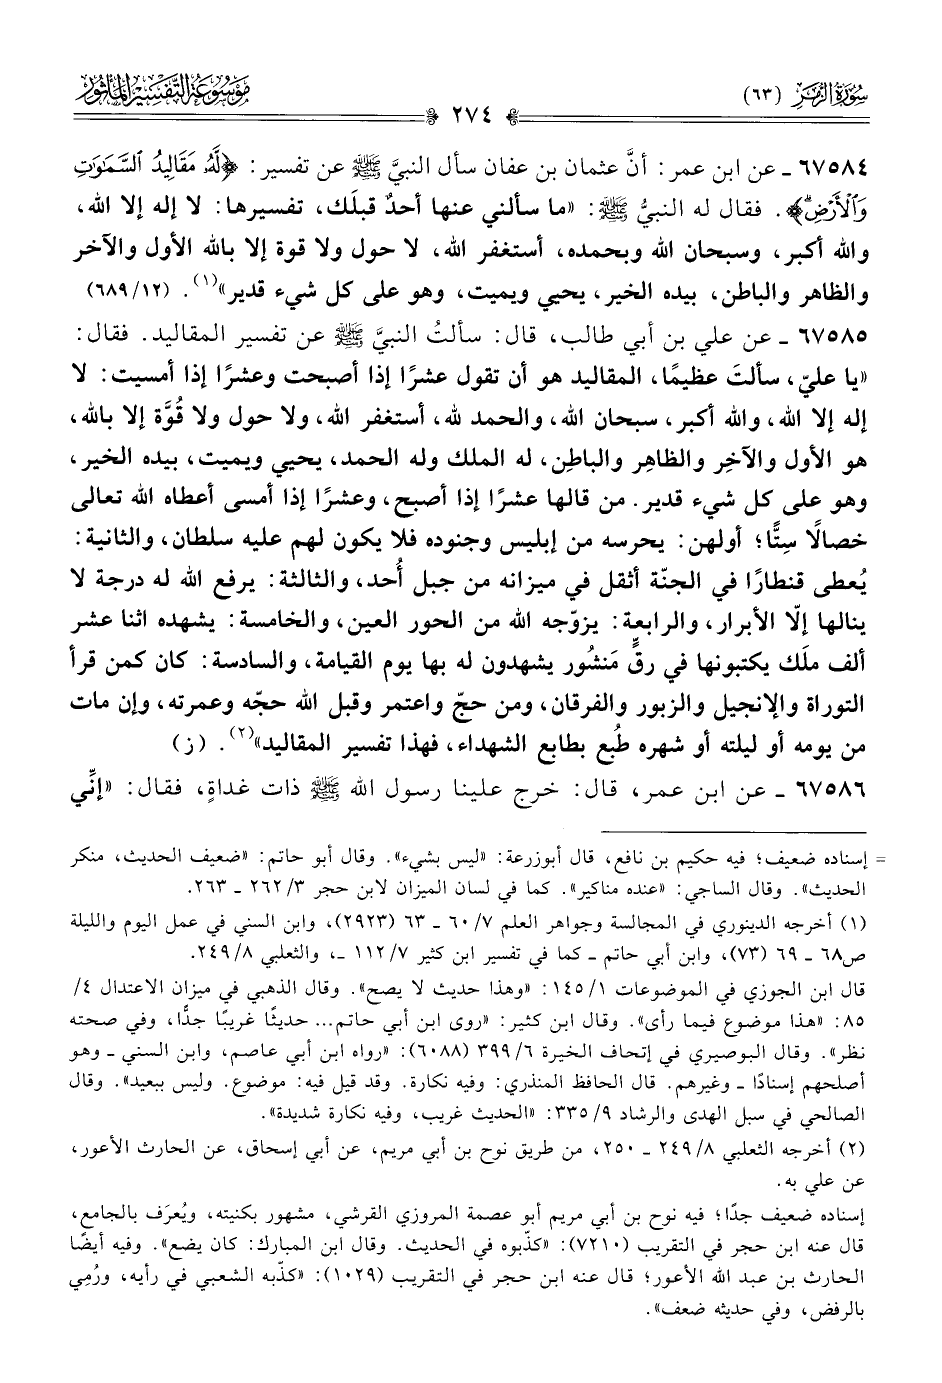 سُورَةُ الزُّمَرِ (٦٣)
٢٧٤
مَوْسُوعَةُ التَّفْسِيرِ المَأْثُورِ
٦٧٥٨٤ ـ عن ابن عمر: أنَّ عثمان بن عفان سأل النبيَّ ﷺ عن تفسير: ﴿لَّهُۥ مَقَالِيدُ ٱلسَّمَٰوَٰتِ
وَٱلْأَرْضِۗ﴾. فقال له النبيُّ ﷺ: «ما سألني عنها أحدٌ قبلَك، تفسيرها: لا إله إلا الله،
والله أكبر، وسبحان الله وبحمده، أستغفر الله، لا حول ولا قوة إلا بالله الأول والآخر
والظاهر والباطن، بيده الخير، يحيي ويميت، وهو على كل شيء قدير»(١). (١٢/ ٦٨٩)
٦٧٥٨٥ ـ عن علي بن أبي طالب، قال: سألتُ النبيَّ ﷺ عن تفسير المقاليد. فقال:
«يا عليّ، سألتَ عظيمًا، المقاليد هو أن تقول عشرًا إذا أصبحت وعشرًا إذا أمسيت: لا
إله إلا الله، والله أكبر، سبحان الله، والحمد لله، أستغفر الله، ولا حول ولا قُوَّة إلا بالله،
هو الأول والآخِر والظاهِر والباطِن، له الملك وله الحمد، يحيي ويميت، بيده الخير،
وهو على كل شيء قدير. من قالها عشرًا إذا أصبح، وعشرًا إذا أمسى أعطاه الله تعالى
خصالًا سِتًّا؛ أولهن: يحرسه من إبليس وجنوده فلا يكون لهم عليه سلطان، والثانية:
يُعطى قنطارًا في الجنّة أثقل في ميزانه من جبل أُحد، والثالثة: يرفع الله له درجة لا
ينالها إلّا الأبرار، والرابعة: يزوّجه الله من الحور العين، والخامسة: يشهده اثنا عشر
ألف ملَك يكتبونها في رقٍّ مَنشُور يشهدون له بها يوم القيامة، والسادسة: كان كمن قرأ
التوراة والإنجيل والزبور والفرقان، ومن حجّ واعتمر وقبل الله حجّه وعمرته، وإن مات
من يومه أو ليلته أو شهره طُبع بطابع الشهداء، فهذا تفسير المقاليد»(٢). (ز)
٦٧٥٨٦ ـ عن ابن عمر، قال: خرج علينا رسول الله ﷺ ذات غداةٍ، فقال: «إنِّي
= إسناده ضعيف؛ فيه حكيم بن نافع، قال أبوزرعة: «ليس بشيء». وقال أبو حاتم: «ضعيف الحديث، منكر
الحديث». وقال الساجي: «عنده مناكير». كما في لسان الميزان لابن حجر ٣/ ٢٦٢ ـ ٢٦٣.
(١) أخرجه الدينوري في المجالسة وجواهر العلم ٧/ ٦٠ ـ ٦٣ (٢٩٢٣)، وابن السني في عمل اليوم والليلة
ص٦٨ ـ ٦٩ (٧٣)، وابن أبي حاتم ـ كما في تفسير ابن كثير ٧/ ١١٢ ـ، والثعلبي ٨/ ٢٤٩.
قال ابن الجوزي في الموضوعات ١/ ١٤٥: «وهذا حديث لا يصح». وقال الذهبي في ميزان الاعتدال ٤/
٨٥: «هذا موضوع فيما رأى». وقال ابن كثير: «روى ابن أبي حاتم... حديثًا غريبًا جدًّا، وفي صحته
نظر». وقال البوصيري في إتحاف الخيرة ٦/ ٣٩٩ (٦٠٨٨): «رواه ابن أبي عاصم، وابن السني ـ وهو
أصلحهم إسنادًا ـ وغيرهم. قال الحافظ المنذري: وفيه نكارة. وقد قيل فيه: موضوع. وليس ببعيد». وقال
الصالحي في سبل الهدى والرشاد ٩/ ٣٣٥: «الحديث غريب، وفيه نكارة شديدة».
(٢) أخرجه الثعلبي ٨/ ٢٤٩ ـ ٢٥٠، من طريق نوح بن أبي مريم، عن أبي إسحاق، عن الحارث الأعور،
عن علي به.
إسناده ضعيف جدًا؛ فيه نوح بن أبي مريم أبو عصمة المروزي القرشي، مشهور بكنيته، ويُعرَف بالجامع،
قال عنه ابن حجر في التقريب (٧٢١٠): «كذّبوه في الحديث. وقال ابن المبارك: كان يضع». وفيه أيضًا
الحارث بن عبد الله الأعور؛ قال عنه ابن حجر في التقريب (١٠٢٩): «كذّبه الشعبي في رأيه، ورُمِي
بالرفض، وفي حديثه ضعف».